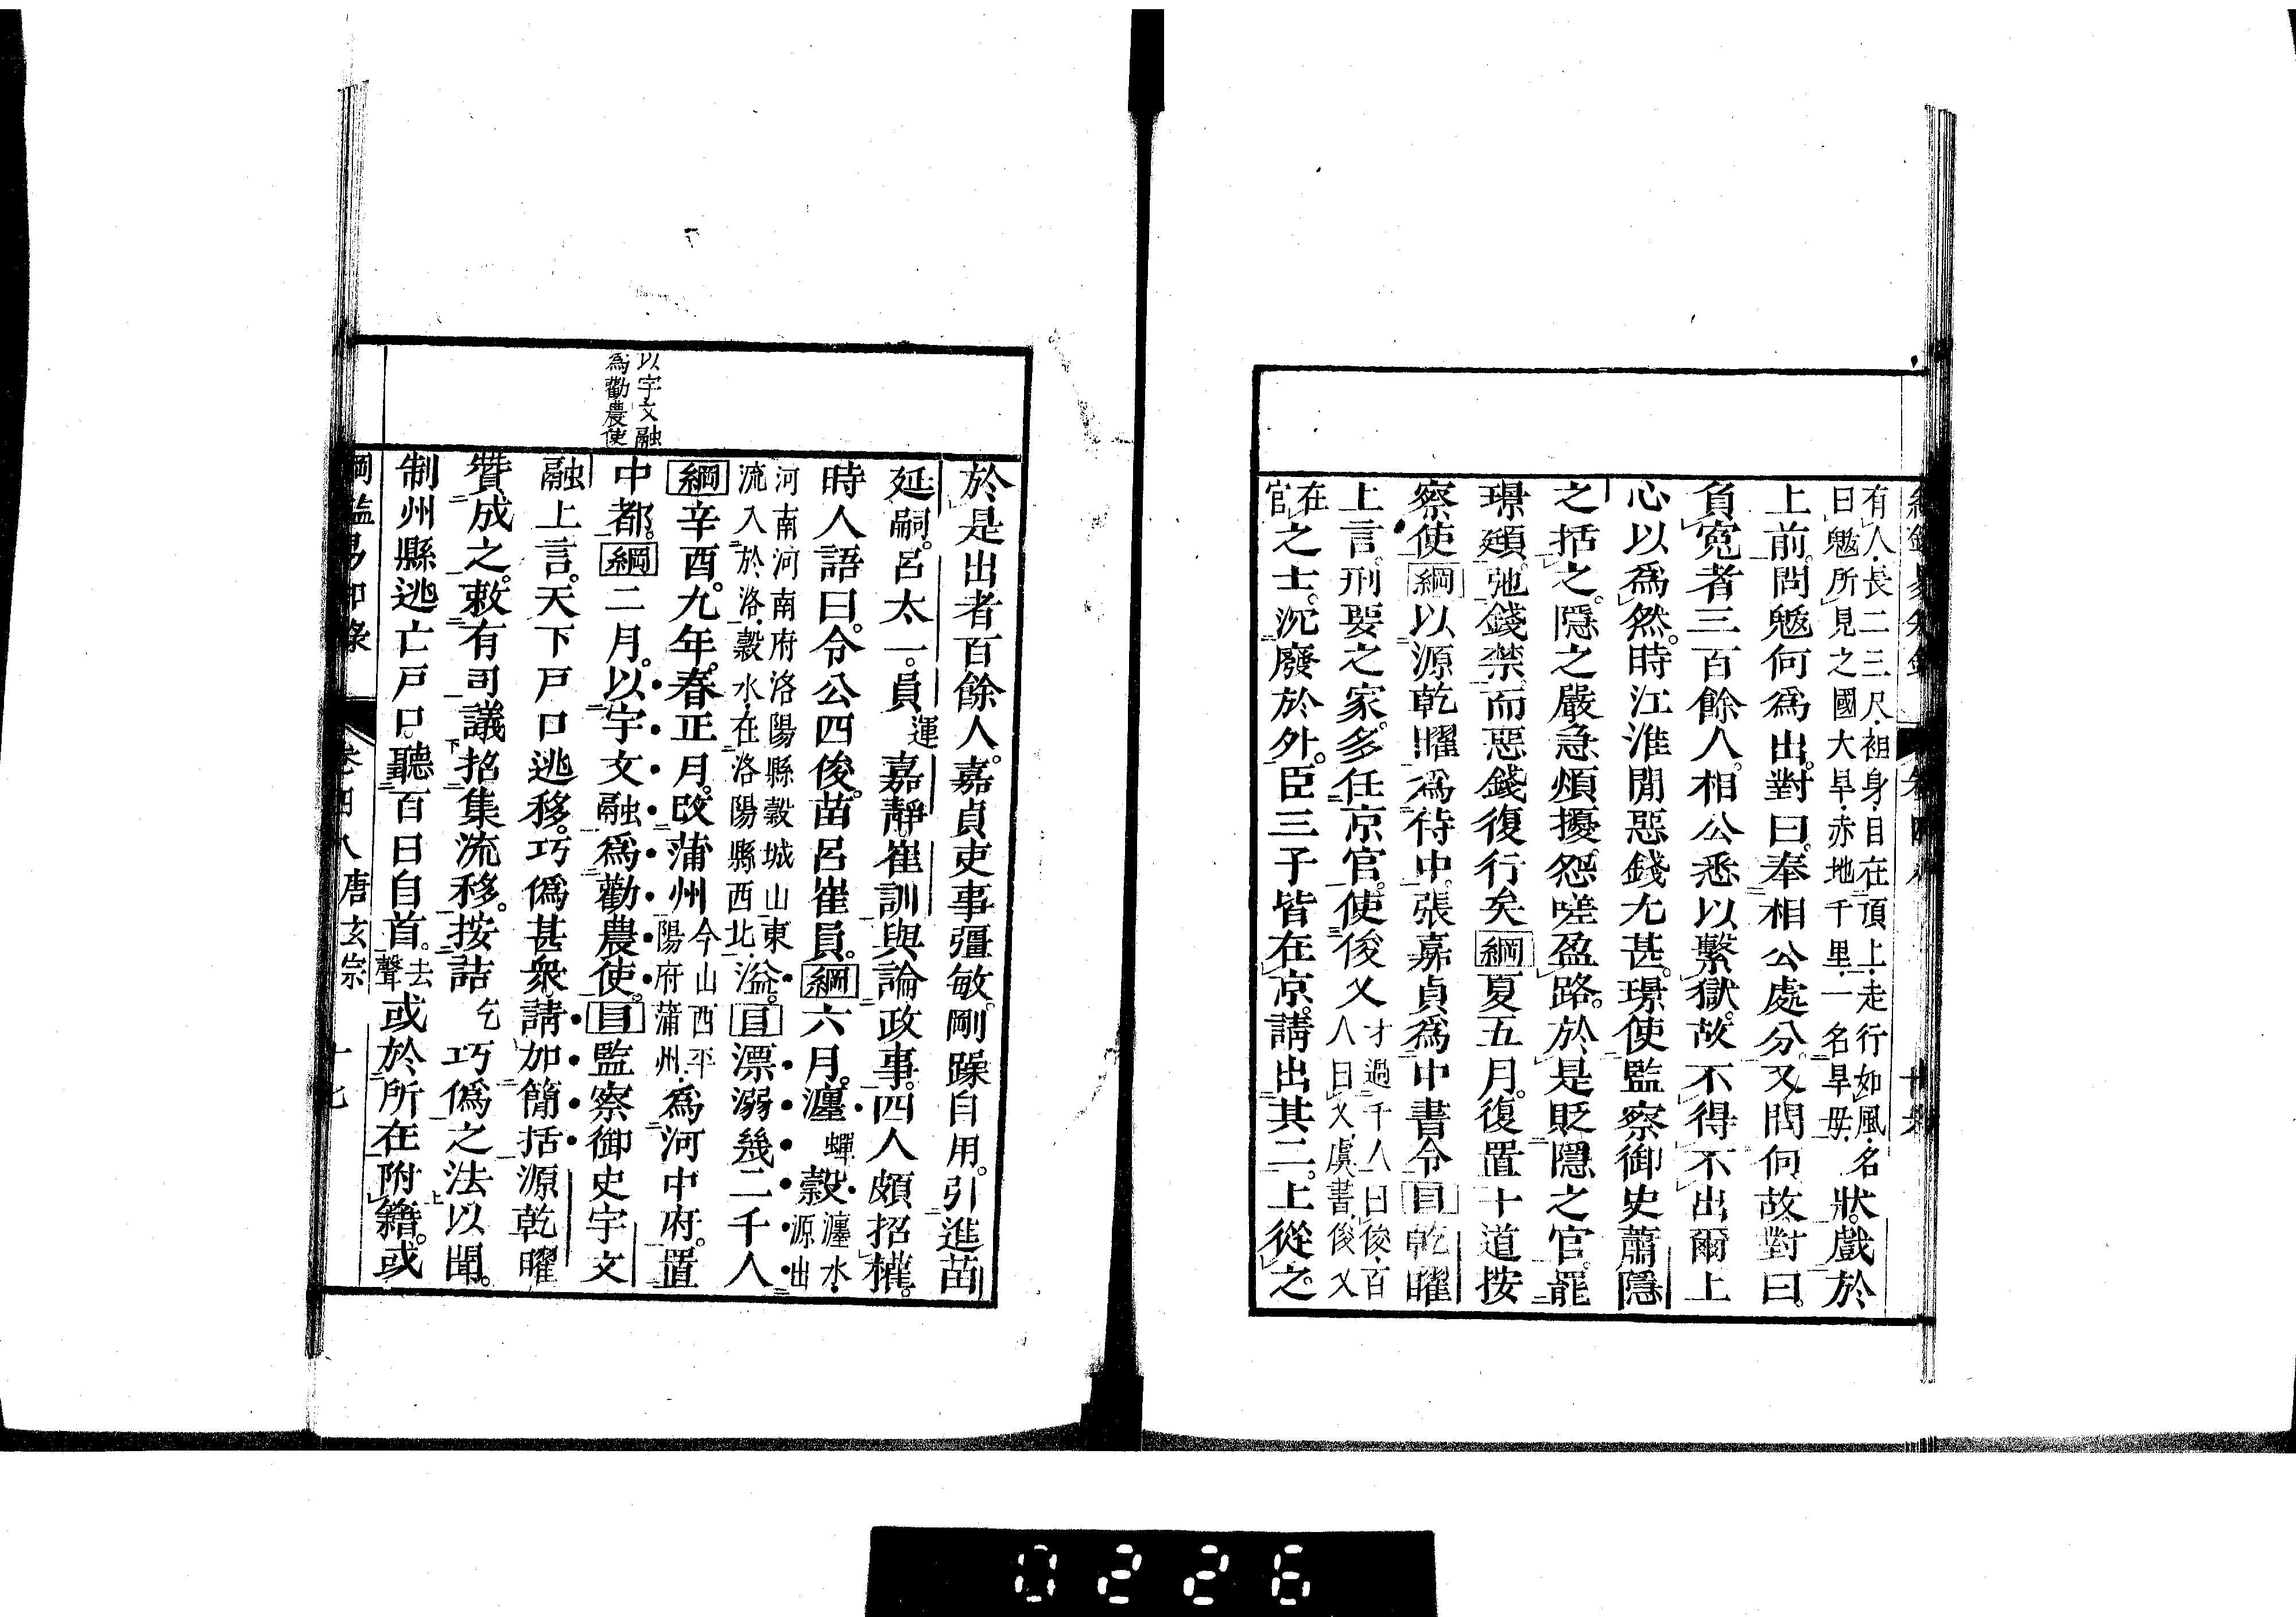 有人長二三尺袒身目在頂上走行如風名
曰魃所見之國大旱赤地千里一名旱母
狀戲於
上前問魃何爲出對曰奉相公處分又問何故對曰
負冤者三百餘人相公悉以繫獄故不得不出爾上
心以爲然時江淮閒惡錢尤甚璟使監察御史蕭隱
之括之隱之嚴急煩擾怨嗟盈路於是貶隱之官罷
璟頲弛錢禁而惡錢復行矣綱夏五月復置十道按
察使綱以源乾曜爲侍中張嘉貞爲中書令目乾曜
上言刑要之家多任京官使俊乂
才過千人曰俊百
人曰乂虞書俊乂
在官
之士沉廢於外臣三子皆在京請出其二上從之
於是出者百餘人嘉貞吏事彊敏剛躁自用引進苗
延嗣呂太一員運嘉靜崔訓與論政事四人頗招權
時人語曰令公四俊苗呂崔員綱六月瀍蟬穀
瀍水源出
河南河南府洛陽縣穀城山東
流入於洛穀水在洛陽縣西北
溢目漂溺幾二千人
綱辛酉九年春正月改蒲州
今山西平
陽府蒲州
爲河中府置
以宇文融
爲勸農使
中都綱二月以宇文融爲勸農使目監察御史宇文
融上言天下戸口逃移巧僞甚衆請加簡括源乾曜
贊成之敕有司議招集流移按詰乞巧僞之法以聞
制州縣逃亡戸口聽百日自首去聲或於所在附籍或
綱鑑易知錄 卷四八 唐玄宗 十七